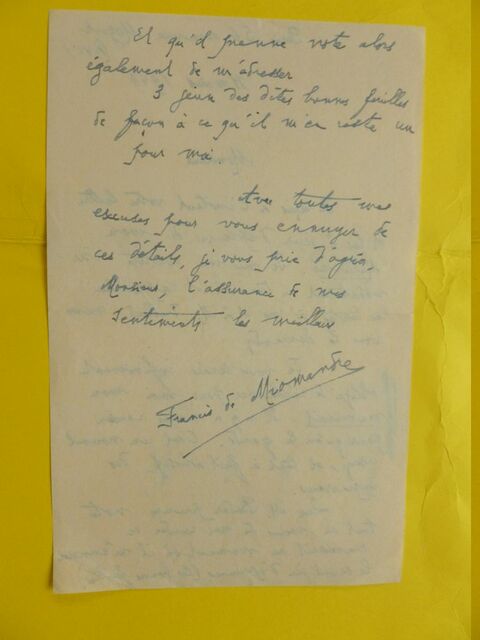 Et qu'il prenne note alors
également de m'adresser
3 jeux des dites bonnes feuilles
de façon à ce qu'il m'en reste un
pour moi.
Avec toutes mes
excuses pour vous ennuyer de
ces détails, je vous prie d'agréer,
Monsieur, l'assurance de mes
sentiments les meilleurs
Francis de Miomandre